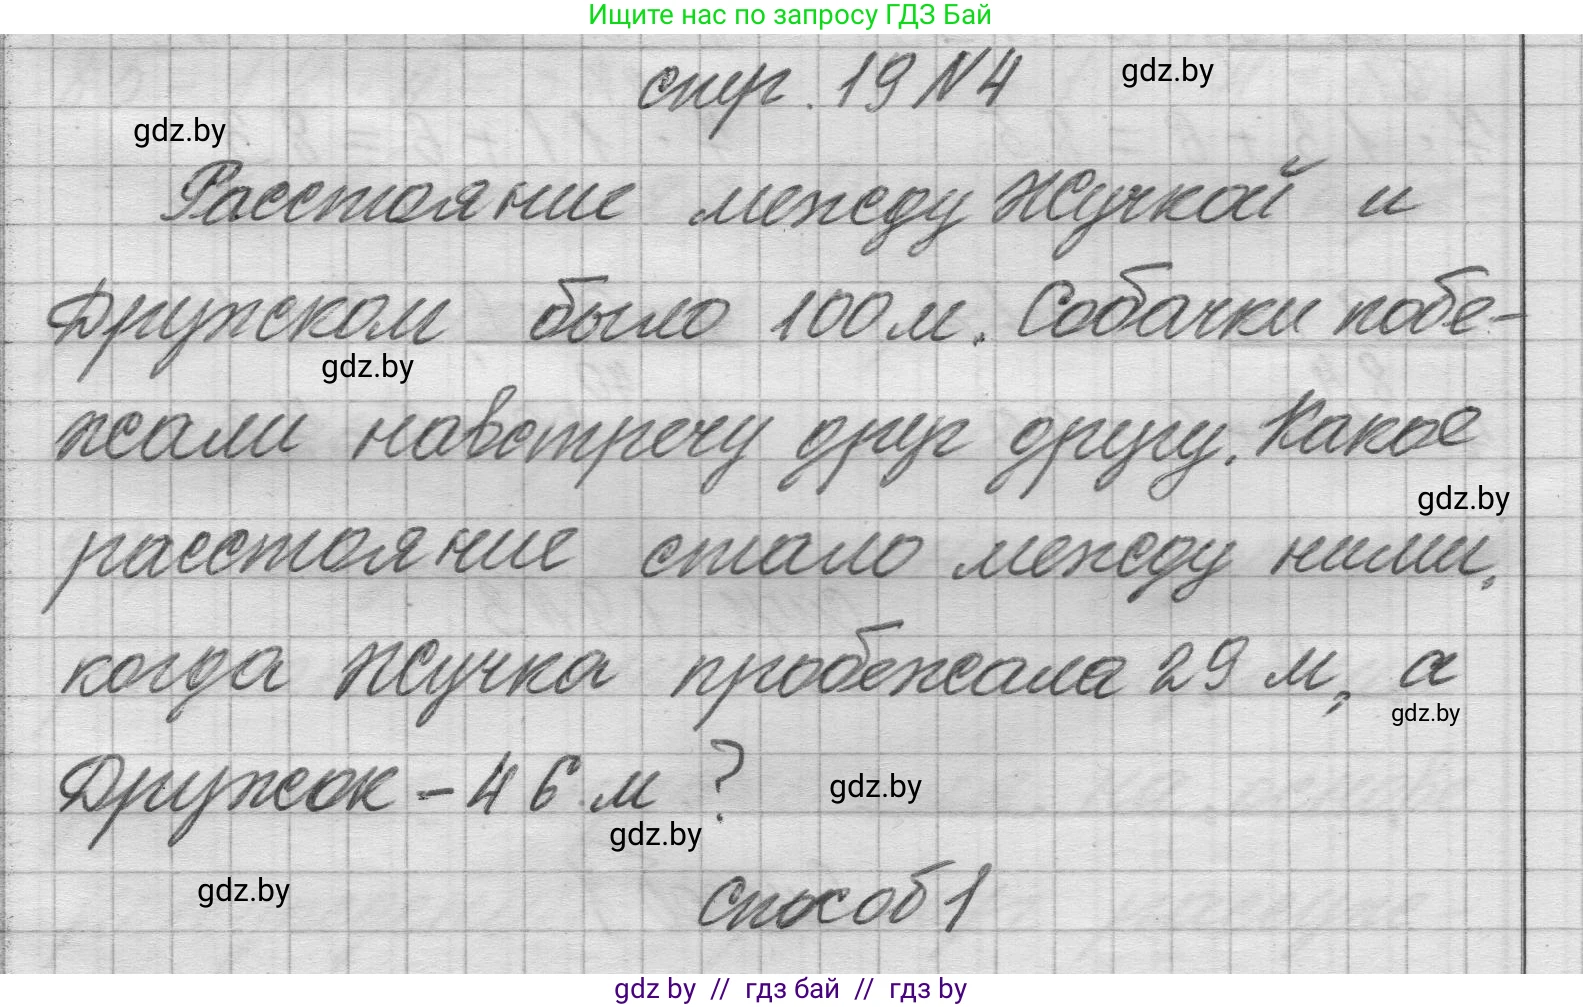 Ищите нас по запросу ГДЗ Бай
стр. 19 N4
gdz.by
gdz.by
Расстояние между Жучкой и
Дружком было 100 м. Собачки побе-
gdz.by
жали навстречу друг другу. Какое
gdz.by
расстояние стало между ними,
когда Жучка пробежала 29 м, а
gdz.by
Дружок - 46 м?
gdz.by
gdz.by
gdz.by
способ 1
gdz by // гдз бай // гдз by